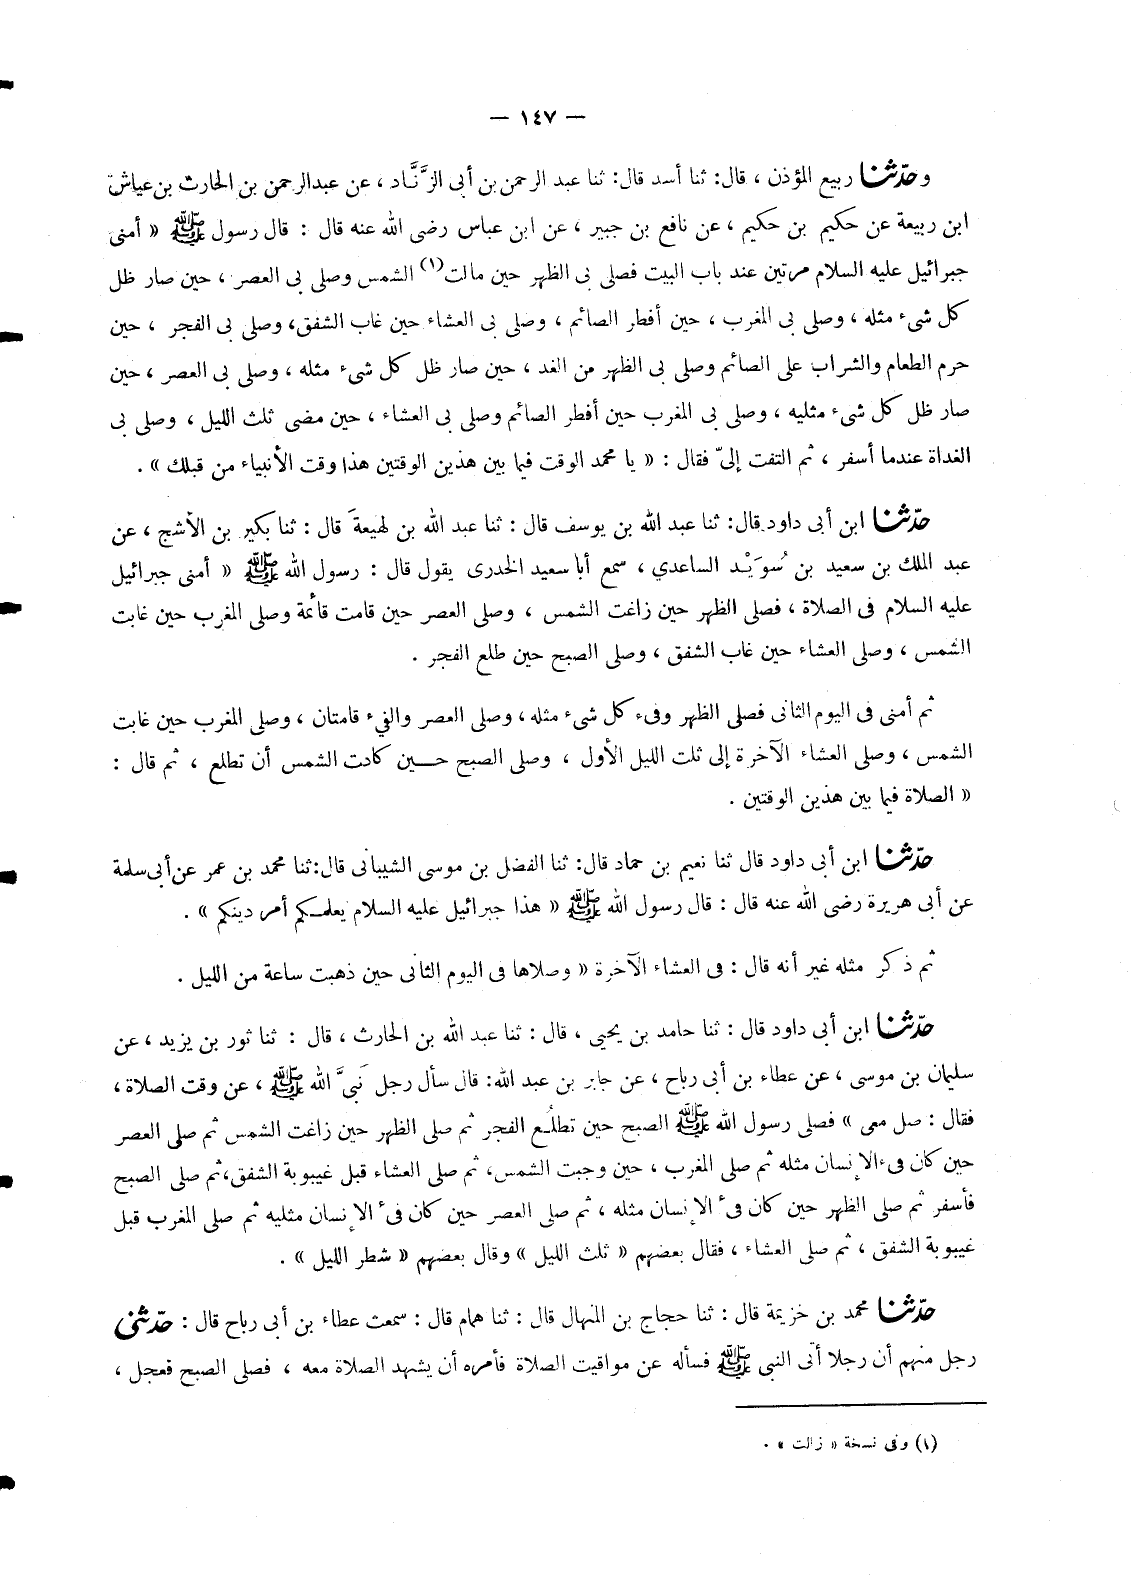 — ١٤٧ —
وحدّثنا ربيع المؤذن ، قال: ثنا أسد قال: ثنا عبد الرحمن بن أبى الزَّنَّاد ، عن عبدالرحمن بن الحارث بن عياش
ابن ربيعة عن حكيم بن حكيم ، عن نافع بن جبير ، عن ابن عباس رضى الله عنه قال : قال رسول ﷺ « أمنى
جبرائيل عليه السلام مرتين عند باب البيت فصلى بى الظهر حين مالت(١) الشمس وصلى بى العصر ، حين صار ظل
كل شىء مثله ، وصلى بى المغرب ، حين أفطر الصائم ، وصلى بى العشاء حين غاب الشفق، وصلى بى الفجر ، حين
حرم الطعام والشراب على الصائم وصلى بى الظهر من الغد ، حين صار ظل كل شىء مثله ، وصلى بى العصر ، حين
صار ظل كل شىء مثليه ، وصلى بى المغرب حين أفطر الصائم وصلى بى العشاء ، حين مضى ثلث الليل ، وصلى بى
الغداة عندما أسفر ، ثم التفت إلىّ فقال : « يا محمد الوقت فيما بين هذين الوقتين هذا وقت الأنبياء من قبلك » .
حدّثنا ابن أبى داود قال: ثنا عبد الله بن يوسف قال : ثنا عبد الله بن لهيعةَ قال : ثنا بكير بن الأشج ، عن
عبد الملك بن سعيد بن سُوَيْد الساعدي ، سمع أبا سعيد الخدرى يقول قال : رسول الله ﷺ « أمنى جبرائيل
عليه السلام فى الصلاة ، فصلى الظهر حين زاغت الشمس ، وصلى العصر حين قامت قائمة وصلى المغرب حين غابت
الشمس ، وصلى العشاء حين غاب الشفق ، وصلى الصبح حين طلع الفجر .
ثم أمنى فى اليوم الثانى فصلى الظهر وفىء كل شىء مثله ، وصلى العصر والفيء قامتان ، وصلى المغرب حين غابت
الشمس ، وصلى العشاء الآخرة إلى ثلث الليل الأول ، وصلى الصبح حـــين كادت الشمس أن تطلع ، ثم قال :
« الصلاة فيما بين هذين الوقتين .
حدّثنا ابن أبى داود قال ثنا نعيم بن حماد قال: ثنا الفضل بن موسى الشيبانى قال:ثنا محمد بن عمر عن أبى سلمة
عن أبى هريرة رضى الله عنه قال : قال رسول الله ﷺ « هذا جبرائيل عليه السلام يعلمـكم أمر دينكم » .
ثم ذكر مثله غير أنه قال : فى العشاء الآخرة « وصلاها فى اليوم الثانى حين ذهبت ساعة من الليل .
حدّثنا ابن أبى داود قال : ثنا حامد بن يحيى ، قال : ثنا عبد الله بن الحارث ، قال : ثنا ثور بن يزيد ، عن
سليمان بن موسى ، عن عطاء بن أبى رباح ، عن جابر بن عبد الله: قال سأل رجل نَبىَّ الله ﷺ ، عن وقت الصلاة ،
فقال : صل معى » فصلى رسول الله ﷺ الصبح حين تطلُع الفجر ثم صلى الظهر حين زاغت الشمس ثم صلى العصر
حين كان فىء الإنسان مثله ثم صلى المغرب ، حين وجبت الشمس، ثم صلى العشاء قبل غيبوبة الشفق،ثم صلى الصبح
فأسفر ثم صلى الظهر حين كان فىء الإنسان مثله ، ثم صلى العصر حين كان فىء الإنسان مثليه ثم صلى المغرب قبل
غيبوبة الشفق ، ثم صلى العشاء ، فقال بعضهم « ثلث الليل » وقال بعضهم « شطر الليل » .
حدّثنا محمد بن خزيمة قال : ثنا حجاج بن المنهال قال : ثنا همام قال : سمعت عطاء بن أبى رباح قال : حدّثنى
رجل منهم أن رجلا أتى النبى ﷺ فسأله عن مواقيت الصلاة فأمره أن يشهد الصلاة معه ، فصلى الصبح فعجل ،
(١) وفى نسخة « زالت » .